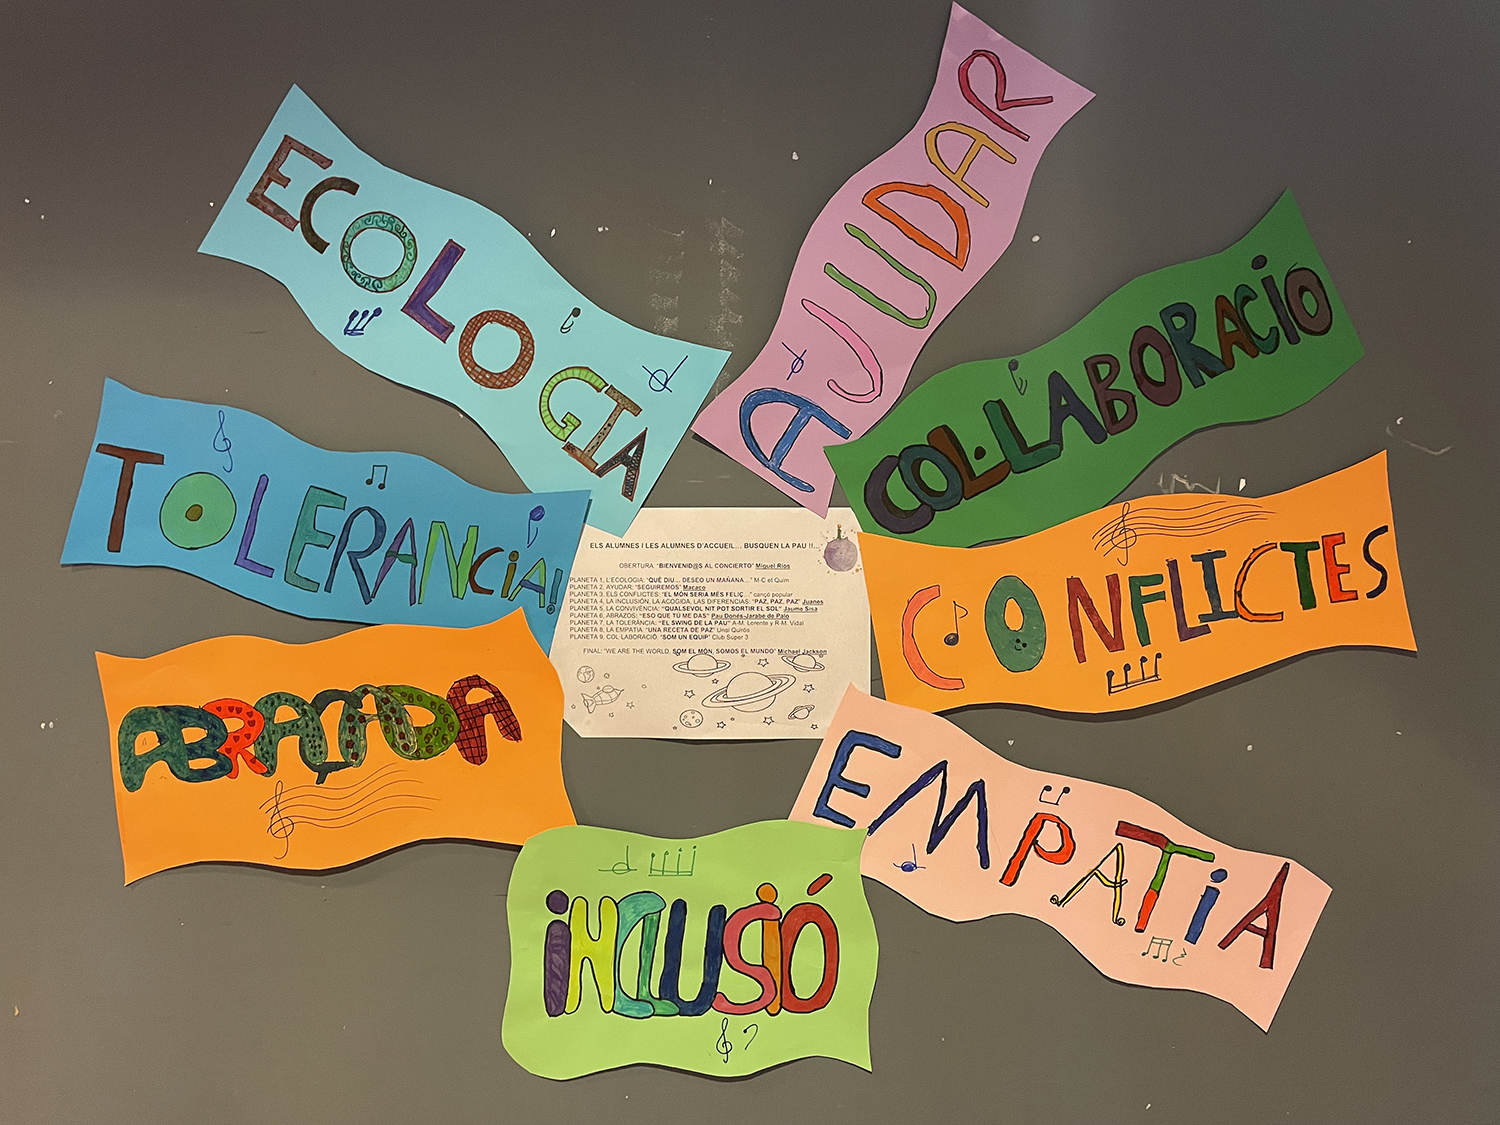 ECOLOGIA
AJUDAR
COL·LABORACIÓ
TOLERANCIA!
CONFLICTES
ABRAÇADA
EMPATIA
INCLUSIÓ
ELS ALUMNES I LES ALUMNES D'ACCUEIL... BUSQUEN LA PAU !!...
OBERTURA: "BIENVENID@S AL CONCIERTO" Miguel Ríos
PLANETA 1, L'ECOLOGIA: "QUÈ DIU... DESEO UN MAÑANA..." M-C et Quim
PLANETA 2, AYUDAR: "SEGUIREMOS" Macaco
PLANETA 3, ELS CONFLICTES: "EL MÓN SERIA MÉS FELIÇ..." cançó popular
PLANETA 4, LA INCLUSIÓN, LA ACOGIDA, LAS DIFERENCIAS: "PAZ, PAZ, PAZ" Juanes
PLANETA 5, LA CONVIVÈNCIA: "QUALSEVOL NIT POT SORTIR EL SOL" Jaume Sisa
PLANETA 6, ABRAZOS: "ESO QUE TÚ ME DAS" Pau Donés-Jarabe de Palo
PLANETA 7, LA TOLERÀNCIA: "EL SWING DE LA PAU" A-M. Lorente y R-M. Vidal
PLANETA 8, LA EMPATÍA: "UNA RECETA DE PAZ" Unai Quirós
PLANETA 9, COL·LABORACIÓ: "SOM UN EQUIP" Club Súper 3
FINAL: "WE ARE THE WORLD, SOM EL MÓN, SOMOS EL MUNDO" Michael Jackson